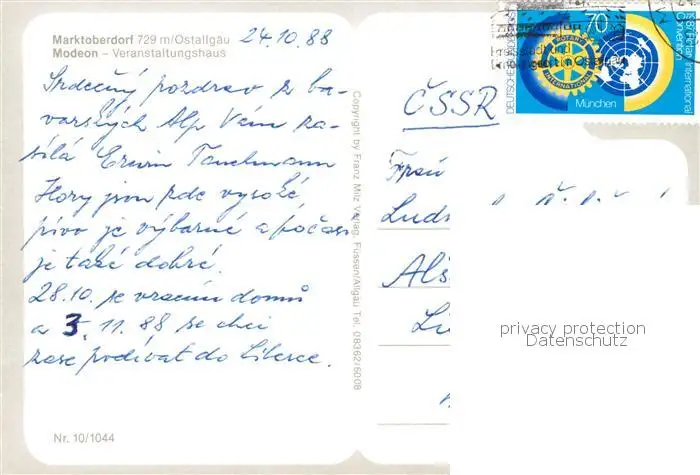 Marktoberdorf 729 m/Ostallgäu
Modeon – Veranstaltungshaus
24.10.88
Srdečný pozdrav z ba-
varských Alp Vám za-
sílá Erwin Tauchmann
Hory jsou zde vysoké,
pivo je výborné a počasí
je také dobré.
28.10. se vracím domů
a 3. 11. 88 se chci
zase podívat do Liberce.
Nr. 10/1044
Copyright by Franz Milz Verlag, Füssen/Allgäu Tel. 08362/6008
DEUTSCHE BUNDESPOST
70
ROTARY
INTERNATIONAL
München
1987 Rotary International
Convention
ČSSR
Frau
Luds
Als
privacy protection
Datenschutz